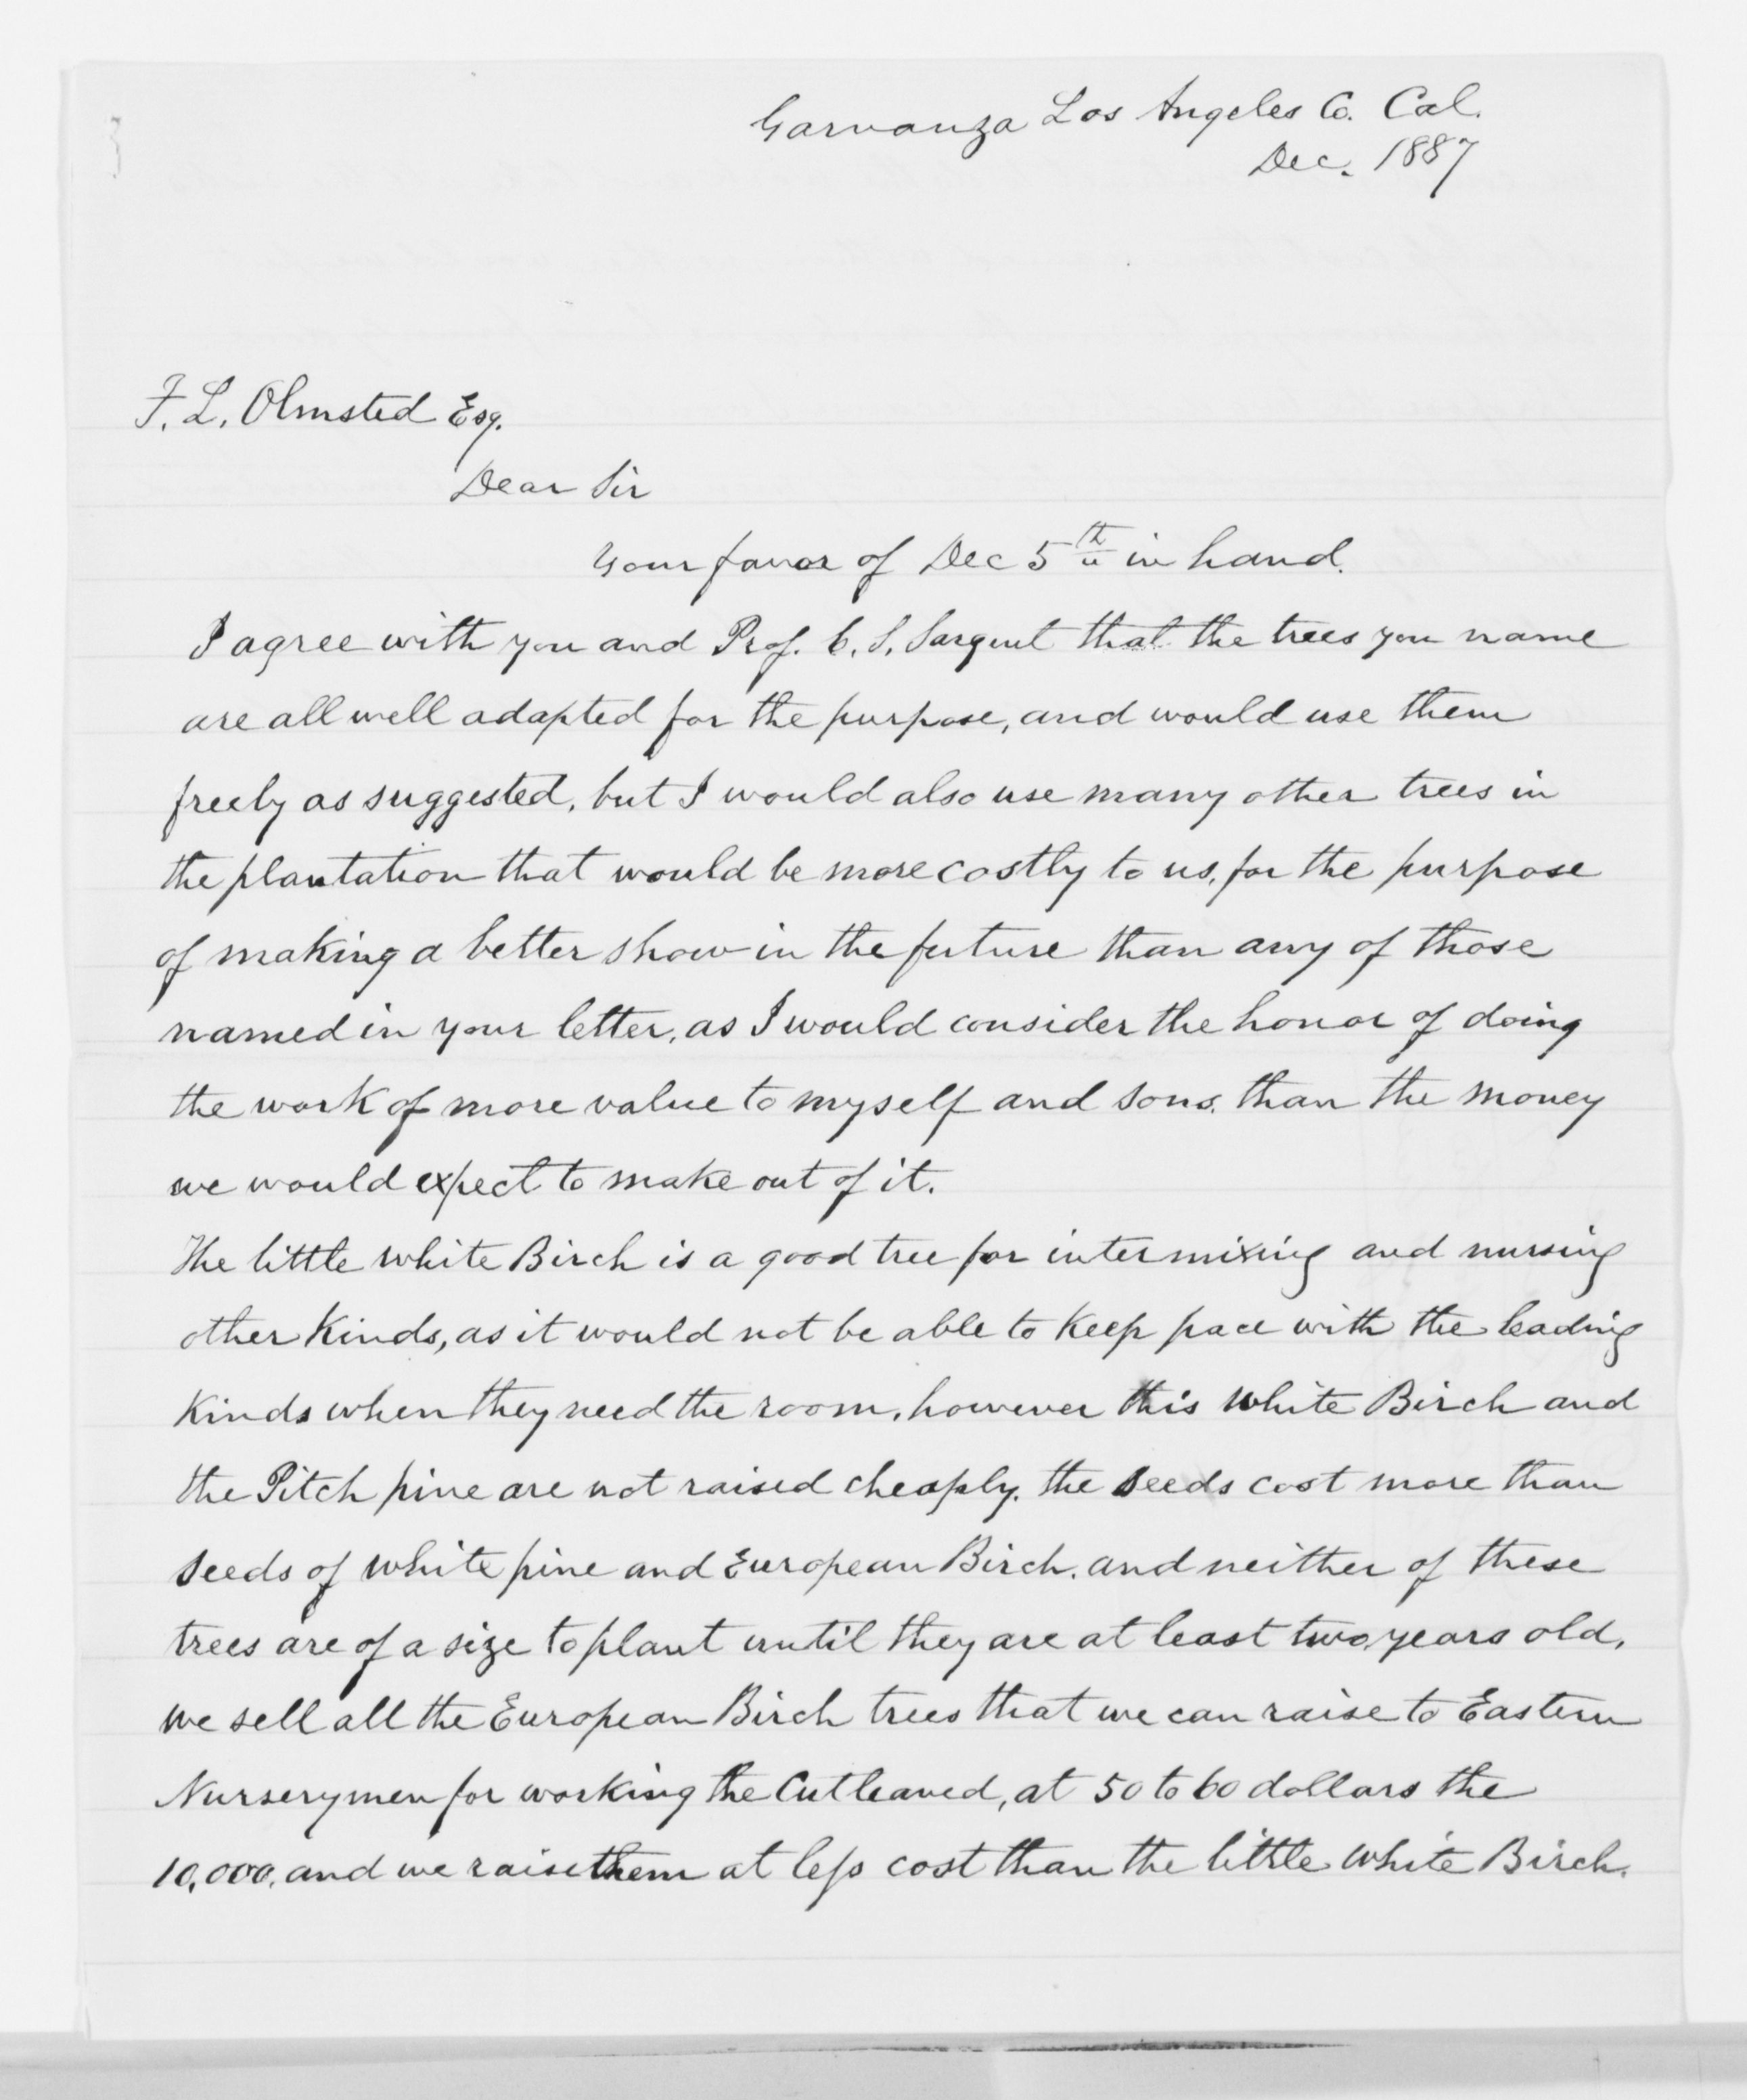 Garvanza Los Angeles Co. Cal.
Dec. 1887
F. L. Olmsted Esq.
Dear Sir
Your favor of Dec 5th in hand.
I agree with you and Prof. C. S. Sargent that the trees you name
are all well adapted for the purpose, and would use them
freely as suggested, but I would also use many other trees in
the plantation that would be more costly to us, for the purpose
of making a better show in the future than any of those
named in your letter, as I would consider the honor of doing
the work of more value to myself and sons, than the money
we would expect to make out of it.
The little white Birch is a good tree for intermixing and nursing
other Kinds, as it would not be able to Keep pace with the leading
Kinds when they need the room, however this White Birch and
the Pitch pine are not raised cheaply. the seeds cost more than
seeds of White pine and European Birch. and neither of these
trees are of a size to plant until they are at least two years old,
we sell all the European Birch trees that we can raise to Eastern
Nurserymen for working the Cut leaved, at 50 to 60 dollars the
10,000, and we raise them at less cost than the little White Birch.